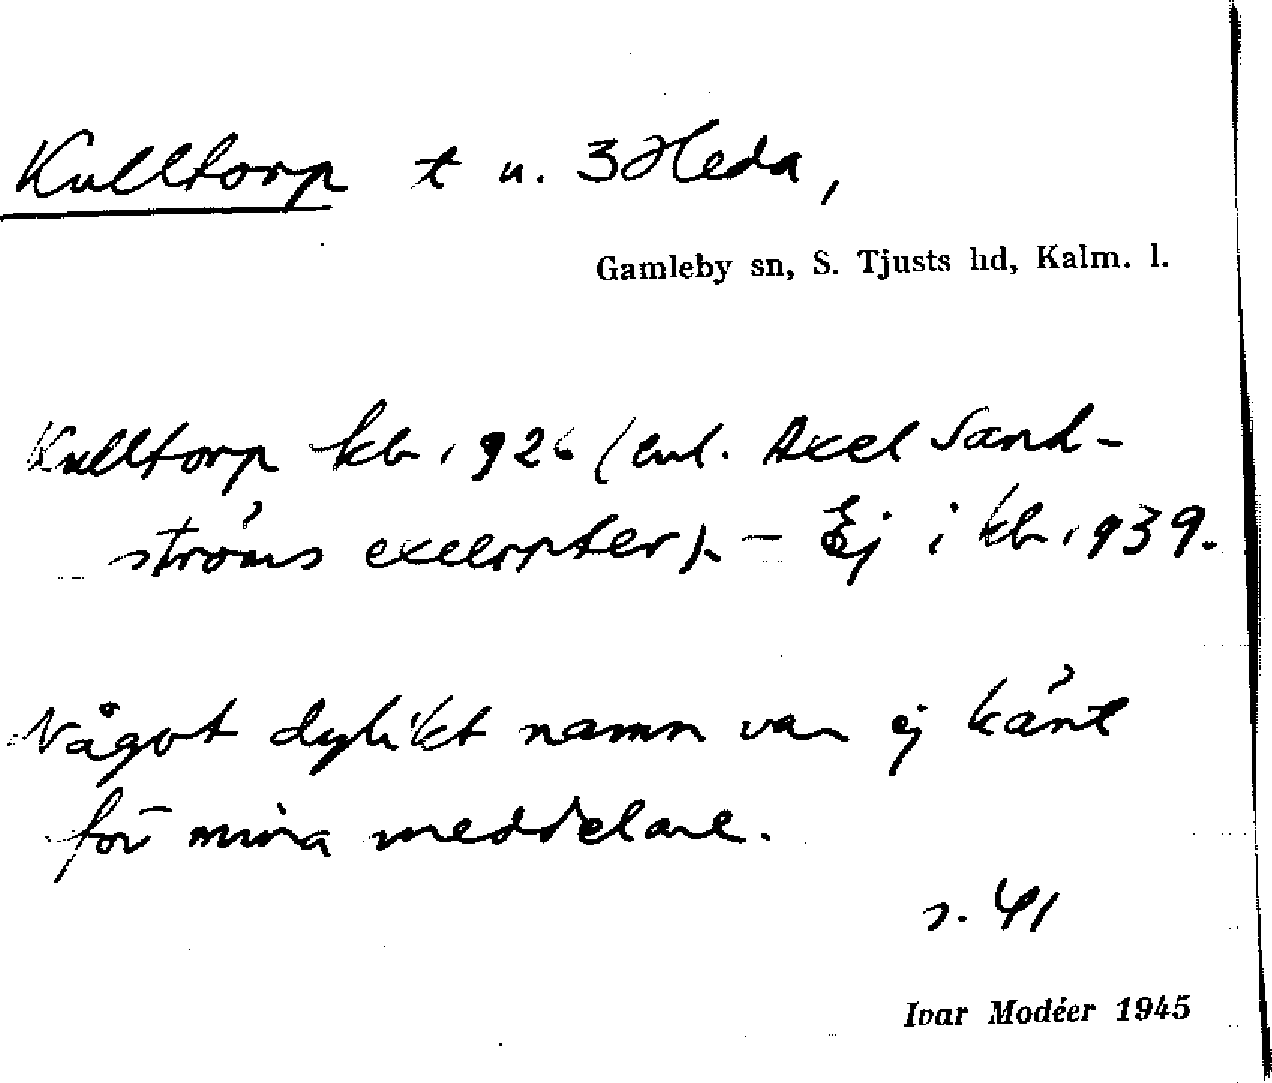 Kulltorp t u. 3 Heda,
Gamleby sn, S. Tjusts hd, Kalm. l.
Kulltorp kb 1926 (enl. Axel Sand-
ströms excerpter). – Ej i kb 1939.
Något dylikt namn var ej känt
för mina meddelare.
s. 41
Ivar Modéer 1945